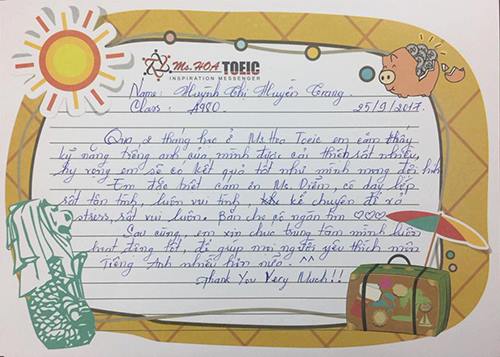 Ms. HOA TOEIC
INSPIRATION MESSENGER
Name: Huỳnh Thị Huyền Trang.
Class: A980 25/9/2017.
Qua 2 tháng học ở Ms Hoa Toeic em cảm thấy
kỹ năng tiếng anh của mình được cải thiện rất nhiều,
hy vọng em sẽ có kết quả tốt như mình mong đợi hihi
Em đặc biệt cảm ơn Ms. Diễm, cô dạy lớp
rất tận tình, luôn vui tính, kể chuyện để xả
stress, rất vui luôn. Bắn cho cô ngàn tim ♡♡♡
Sau cùng, em xin chúc trung tâm mình luôn
hoạt động tốt, để giúp mọi người yêu thích môn
tiếng Anh nhiều hơn nữa. ^^
Thank You Very Much!!